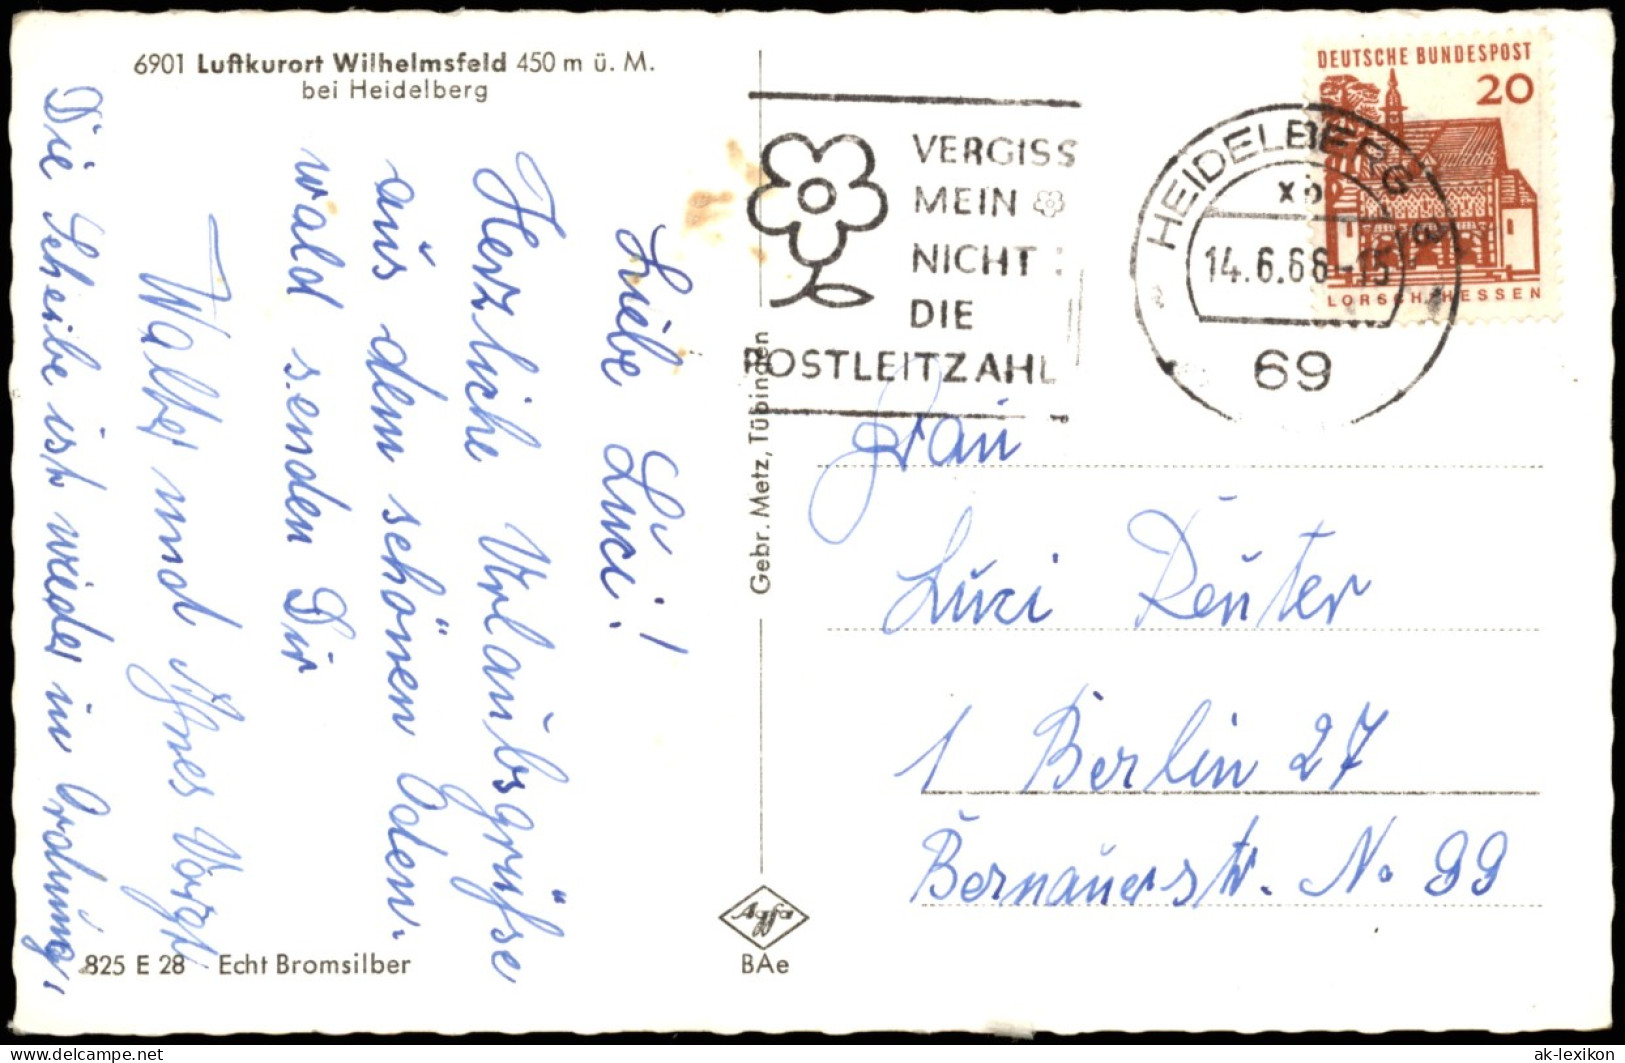 6901 Luftkurort Wilhelmsfeld 450 m ü. M.
bei Heidelberg
Liebe Luci!
Herzliche Urlaubsgrüsse
aus dem schönen Oden-
wald senden Dir
Walter und Agnes
Die Scheibe ist wieder in Ordnung,
825 E 28 Echt Bromsilber
Gebr. Metz, Tübingen
Agfa
BAe
VERGISS
MEIN
NICHT
DIE
POSTLEITZAHL
HEIDELBERG
14.6.66-15
69
DEUTSCHE BUNDESPOST
20
LORSCH/HESSEN
Frau
Luzi Reuter
1 Berlin 27
Bernauerstr. No 99
ak-lexikon